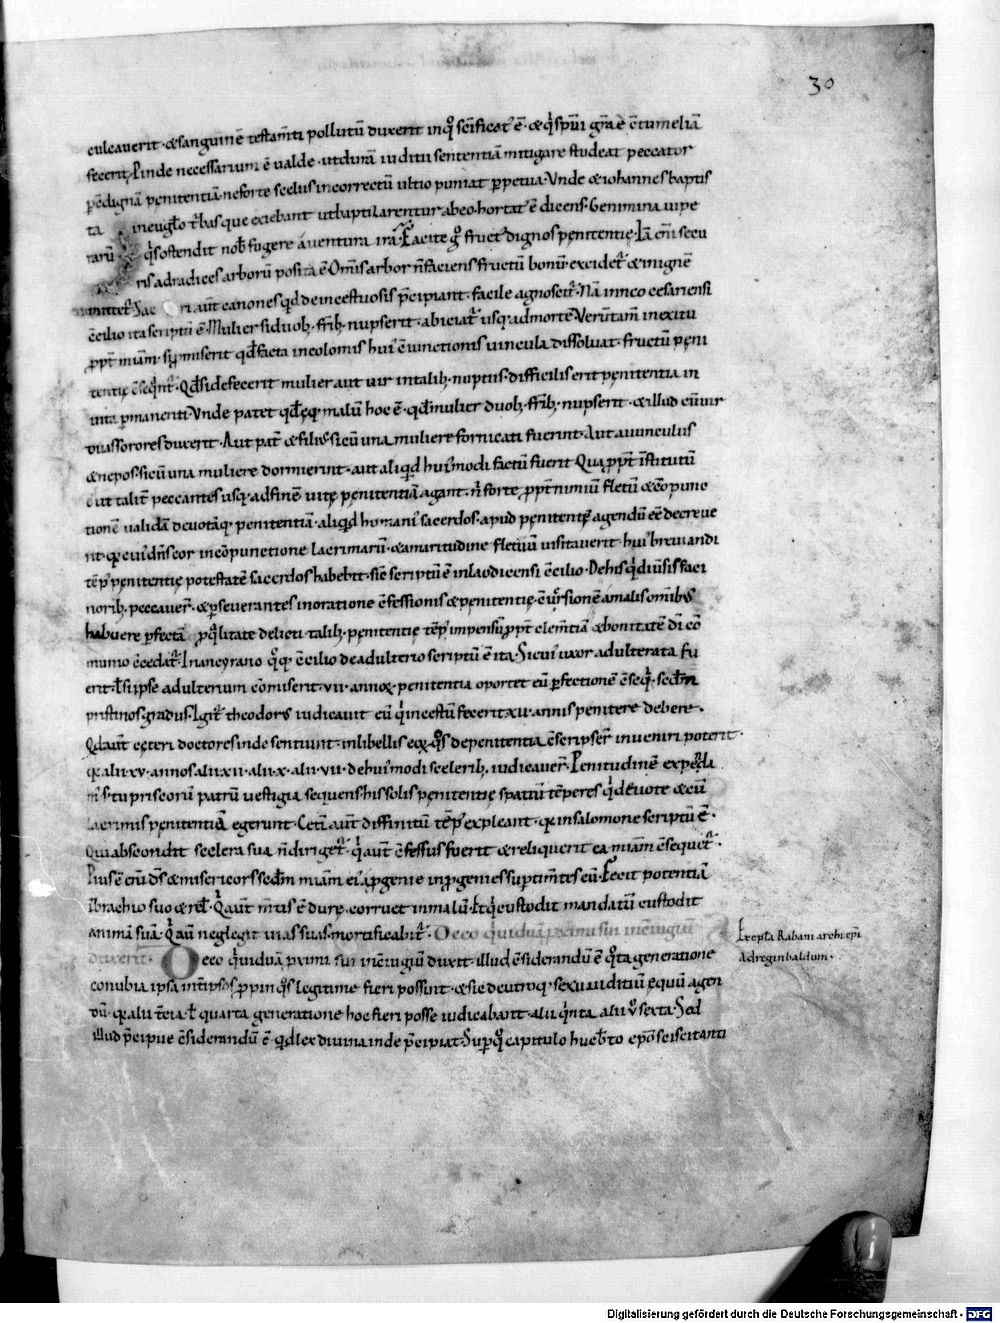 30
culcaverit · & sanguinē testam̄ti pollutū duxerit in q° sc̄ificat' ē · & q̇ sp̄ui gr̄ae ē tumeliā
fecerit. Pinde necessarium ē ualde · ut durā iuditii sententiā mitigare studeat peccator
p̄ cdignā penitentiā · ne forte scelus incorrectū ultio puniat ppetua · Vnde & iohannes baptis
ta in eug̃lo t'bas que exiebant ut baptizarentur ab eo · hortat' ē dicens · Genimina uipe
rarū q̇s ostendit nob' fugere a uentura ira · Facite g° fruct' dignos penitentie · Iā eni secu
ris ad radices arborū posita ē · Om̄is arbor n̄ faciens fructū bonū · excidet' & in ignē
mittet' · Sac ri aut̄ canones qd de incestuosis p̄cipiant · facile agnoscit' · Nā in neocesariensi
c̄cilio ita scriptū ē · Mulier si duob; frīb; nupserit · abiciat' usq; ad mortē · Verūtam̄ in exitu
ppt̄ miam · si pmiserit qd facta incolomis hui' c̄iunctionis uincula dissoluat · fructū peni
tentie c̄seq̄nt' · Qd si defecerit mulier aut uir in talib; nuptiis · difficilis erit penitentia in
uita pmanenti · Vnde patet qd ęq; malū hoc ē · qd mulier duob; frīb; nupserit · & illud cū uir
duas sorores duxerit · Aut pat̄ & filius si cū una muliere fornicati fuerint · Aut auunculus
& nepos · si cū una muliere dormierint · aut aliqid hui'modi factū fuerit Qua ppt̄ īstitutū
ē ut talit̄ peccantes usq; ad finē uitę penitentiā agant · n̄ forte ppt̄ nimiū fletū & cōpunc
tionē ualidā deuotāq; penitentiā · aliqd humani' sacerdos · apud penitentē agendū eē decreue
rit · q; cui' dn̄s cor in cōpunctione lacrimarū · & amaritudine fletuū uisitauerit · hui' breuiandi
tēp' penitentie potestatē sacerdos habebit · sic scriptū ē in laodicensi c̄cilio · De his q̇ diūsis faci
norib; peccauer' · & pseuerantes in oratione c̄fessionis & penitentie · c̄u'sionē a malis om̄ibus
habuere pfectā p q̇litate delicti talib; penitentie tēp' impensū ppt̄ clem̄tiā & bonitatē di cō
munio c̄cedat' · In ancyrano q°q; c̄cilio de adulterio scriptū ē ita · Si cui' uxor adulterata fu
erit · l' si ipse adulterium cōmiserit · vii · annorū · penitentia oportet eū pfectionē c̄seq̇ · sedm
pristinos · gradus · Igit̄ theodorus iudicauit eū q̇ incestū fecerit xii · annis penitere debere ·
Qd aut̄ ceteri doctores inde sentiunt · in libellis eorū · q°s de penitentia c̄scripser' inueniri poterit ·
q; alii xv · annos alii xii · alii · x · alii · vii · de hui'modi scelerib; iudicauer' ·
priscorū patrū uestigia sequens · his solis penitentie spatiū tēperes q̇ deuote & cū
lacrimis penitentiā egerunt · Ceti aut̄ diffinitū tēp' expleant · q; in salomone scriptū ē ·
Qui abscondit scelera sua n̄ diriget' · q̇ aut̄ c̄fessus fuerit & reliquerit ea miam c̄sequet' ·
Pius ē eni ds & misericors sedm miam ei' a pgenie in pgenies sup tim̄tes eū · Fecit potentiā
ī brachio suo & rel' · Q̇ aut̄ m̄tis ē durę · corruet in malū · Et q̇ custodit mandatū custodit
animā suā · Q̇ aū neglegit uias suas mortificabit' · De eo q̇ duiduā pximi sui in c̄iugiū
duxerit · De eo q̇ uiduā pximi sui in c̄iugiū duxit · illud c̄siderandū ē q°ta generatione
conubia ipsa inter ipsos ppinq°s legitime fieri possunt · & sic de utroq; sexu iuditiū equū agen
dū · q; alii t̄cia · l' quarta generatione hoc fieri posse iudicabant · alii q̇nta alii u° sexta · Sed
illud p̄cipue c̄siderandū ē · qd lex diuina inde p̄cipiat · Sup q° capitulo hucb'to ep̄o sciscitanti
Ex epta Rabani archiep̄i
Ad reginbaldum ·
Digitalisierung gefördert durch die Deutsche Forschungsgemeinschaft - DFG